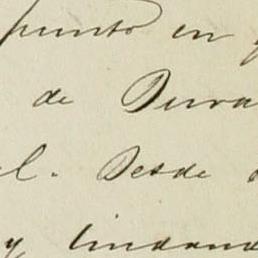 punto en
de Dura
l. Desde
y lindand